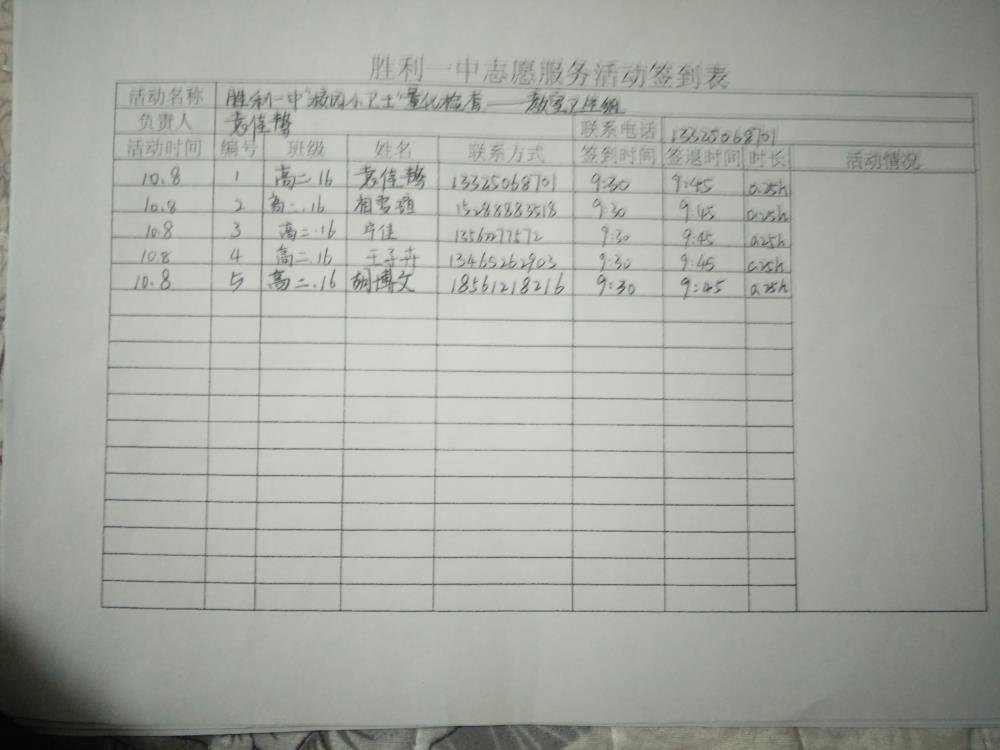 胜利一中志愿服务活动签到表
活动名称 胜利一中"校园小卫士"量化检查——教室卫生组
负责人 袁佳 联系电话 13325068701
活动时间 编号 班级 姓名 联系方式 签到时间 签退时间 时长 活动情况
10.8 1 高二.16 袁佳 13325068701 9:30 9:45 0.25h
10.8 2 高二.16 相雪 15288883518 9:30 9:45 0.25h
10.8 3 高二.16 毕佳 9:30 9:45 0.25h
10.8 4 高二.16 王子卉 13465262903 9:30 9:45 0.25h
10.8 5 高二.16 胡博文 18561218216 9:30 9:45 0.25h